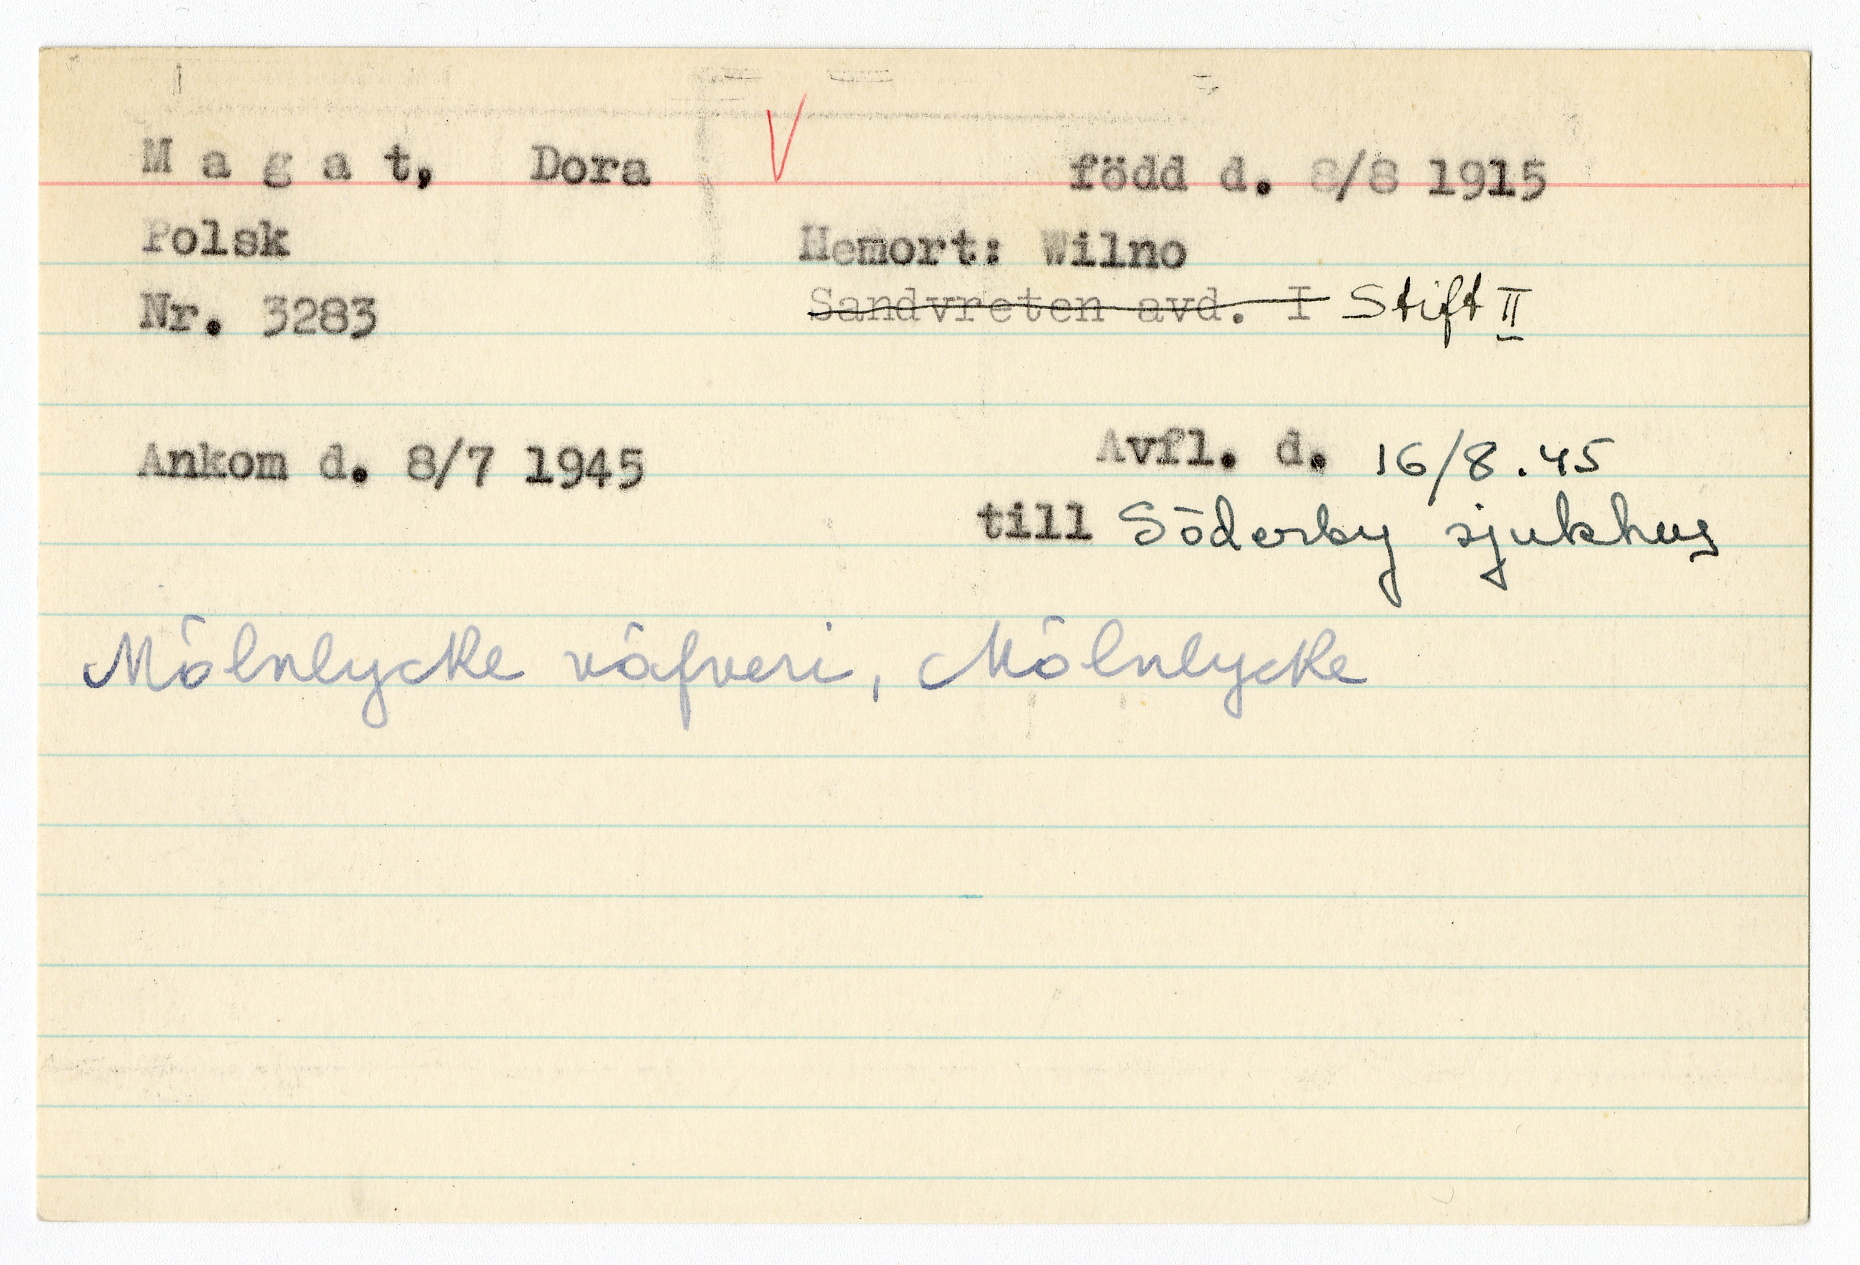 M a g a t, Dora V född d. 8/8 1915
Polsk Hemort: Wilno
Nr. 3283 Sandvreten avd. I Stift II
Ankom d. 8/7 1945 Avfl. d. 16/8.45
till Söderby sjukhus
Mölnlycke väfveri, Mölnlycke